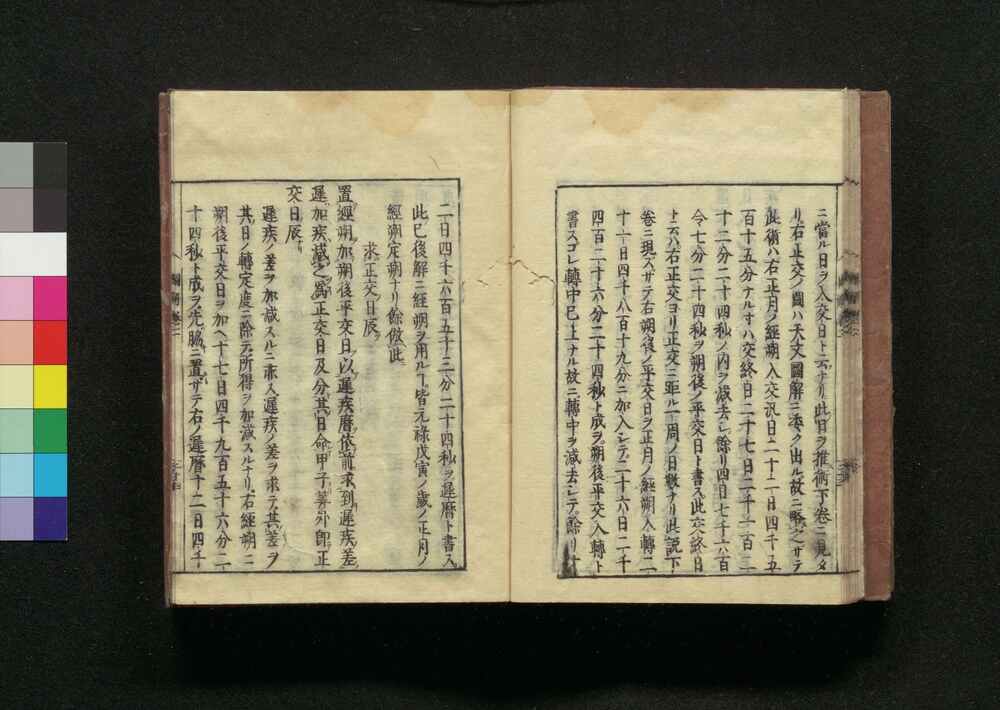 ニ當ル日ヲ入交日ト云ナリ此日ヲ推術下卷ニ見タ
リ右正交ノ圖ハ天文圖解ニ委ク出ル故ニ略之サテ
此術ハ右正月ノ經朔入交汎日二十一日四千五
百十五分ナルオハ交終日二十七日二千一百二
十二分二十四秒ノ内ヲ減去シ餘リ四日七千六百
令七分二十四秒ヲ朔後ノ平交日ト書ス此交終日
ト云ハ右正交ヨリ正交ニ至ル一周ノ日數ナリ此説下
卷ニ現スサテ右朔後ノ平交日ヲ正月ノ經朔入轉二
十一日四千八百十九分ニ加入シテ二十六日二千
四百二十六分二十四秒ト成ヲ朔後平交入轉ト
書スコレ轉中已上ナル故ニ轉中ヲ減去シテ餘リ十
二日四千六百五十三分二十四秒ヲ遲曆ト書ス
此已後解ニ經朔ヲ用ルヿ皆元祿戊寅ノ歲ノ正月ノ
經朔定朔ナリ餘倣此
求正交日辰
置經朔加朔後平交日以遲疾曆依前求到遲疾差
遲加疾減之爲正交日及分其日命甲子筭外卽正
交日辰
遲疾ノ差ヲ加減スルニ亦入遲疾ノ差ヲ求テ其差ヲ
其日ノ轉定度ニ除テ所得ヲ加減スルナリ右經朔ニ
朔後平交日ヲ加ヘ十七日四千九百五十六分二
十四秒ト成ヲ先脇ニ置サテ右ノ遲曆十二日四千